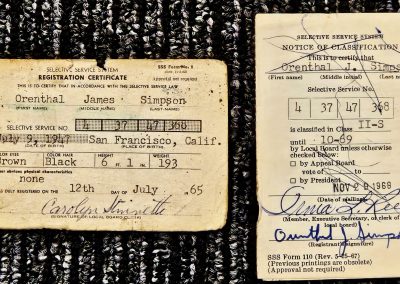 SELECTIVE SERVICE SYSTEM
REGISTRATION CERTIFICATE
SSS Form No. 2
Approval not required
THIS IS TO CERTIFY THAT IN ACCORDANCE WITH THE SELECTIVE SERVICE LAW
Orenthal James Simpson
(FIRST NAME) (MIDDLE NAME) (LAST NAME)
SELECTIVE SERVICE NO. 4 37 47 368
July 9, 1947 San Francisco, Calif.
PLACE OF BIRTH
COLOR EYES COLOR HAIR
Brown Black 6 FT. 1 IN. 193
none
12th DAY OF July 65
SELECTIVE SERVICE SYSTEM
NOTICE OF CLASSIFICATION
This is to certify that
Orenthal J. Simpson
(First name) (Middle initial) (Last name)
Selective Service No.
4 37 47 368
is classified in Class II-S
until 10-69
by Local Board unless otherwise
checked below:
by Appeal Board
vote of to
by President
NOV 20 1968
(Date of mailing)
(Member, Executive Secretary, or clerk of
local board)
Orenthal J Simpson
(Registrant's signature)
SSS Form 110 (Rev. 5-25-67)
(Previous printings are obsolete)
(Approval not required)